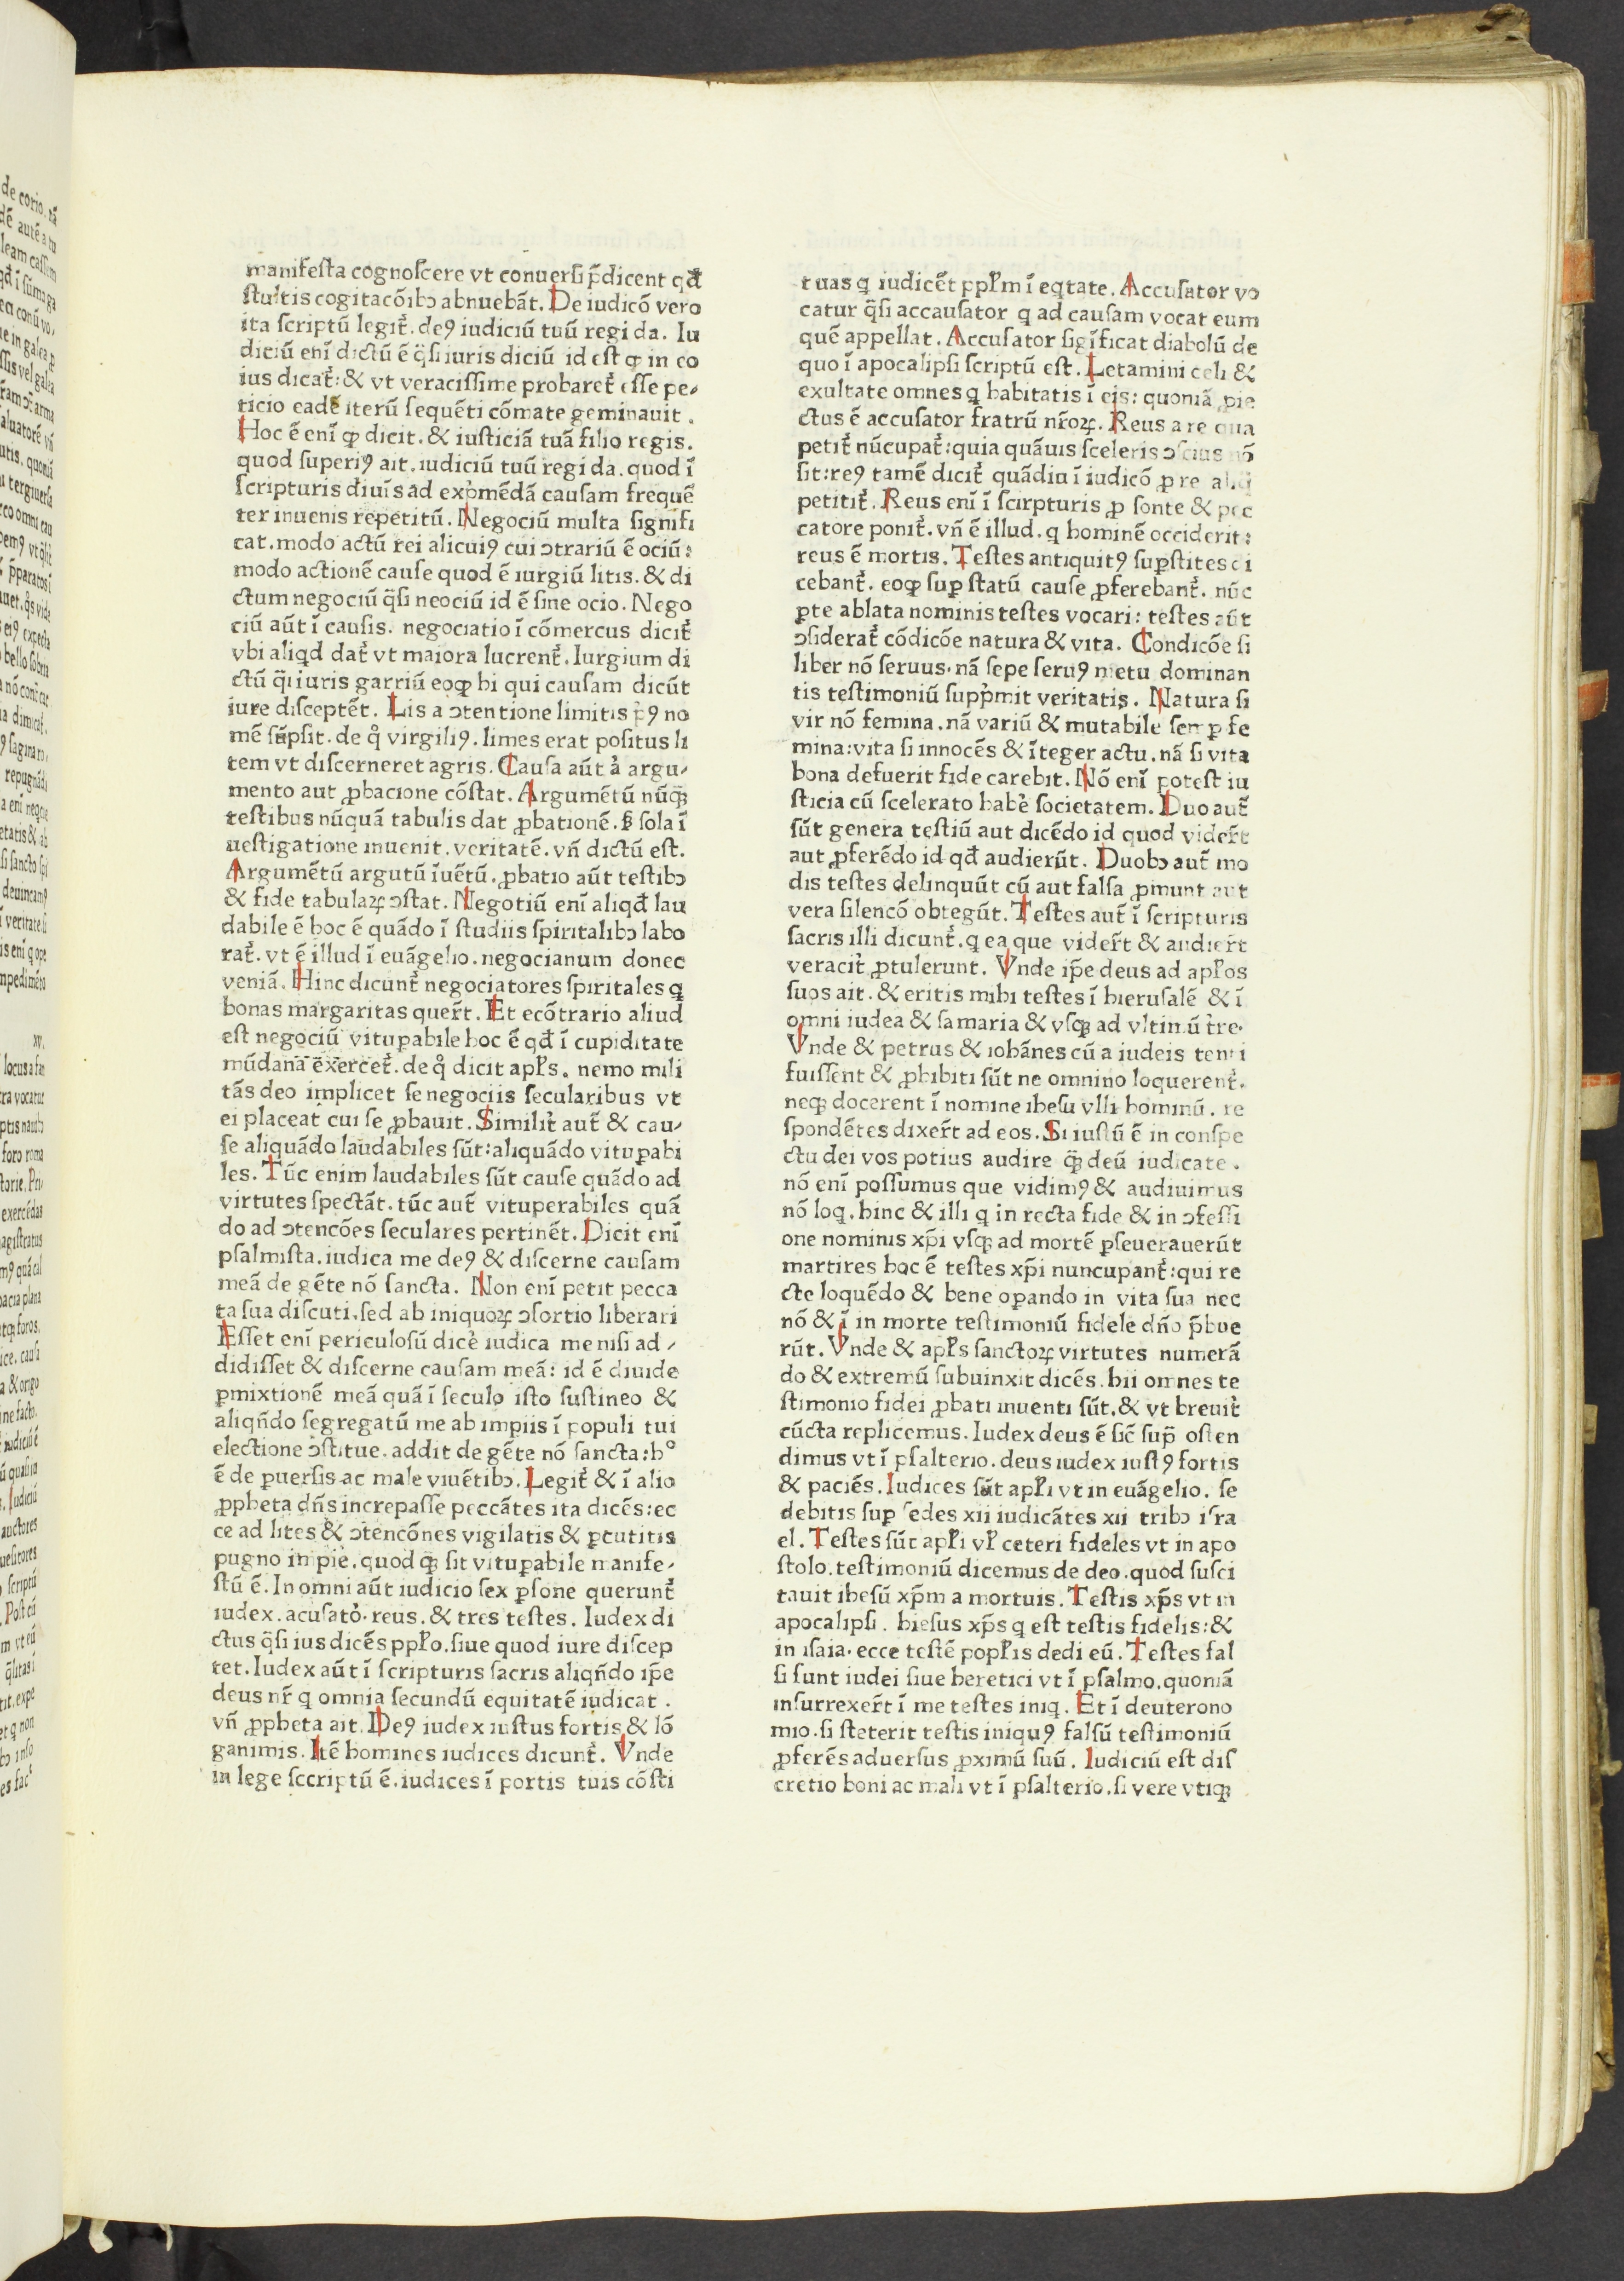 manifesta cognoscere vt conuersi p̃dicent qđ
stultis cogitacõibꝫ abnuebãt. De iudicõ vero
ita scriptũ legit̃. deꝰ iudiciũ tuũ regi da. Iu
diciũ enĩ dictũ ẽ q̃si iuris diciũ id est ꝙ in eo
ius dicat̃: & vt veracissime probaret̃ esse pe⸗
ticio eadẽ iterũ sequẽti cõmate geminauit.
Hoc ẽ enĩ ꝙ dicit. & iusticiã tuã filio regis.
quod superiꝰ ait. iudiciũ tuũ regi da. quod ĩ
scripturis diuĩs ad exp̃mẽdã causam frequẽ
ter inuenis repetitũ. Negociũ multa signifi
cat. modo actũ rei alicuiꝰ cui ↄtrariũ ẽ ociũ:
modo actionẽ cause quod ẽ iurgiũ litis. & di
ctum negociũ q̃si neociũ id ẽ sine ocio. Nego
ciũ aũt ĩ causis. negociatio ĩ cõmercus dicit̃
vbi aliqd dat̃ vt maiora lucrent̃. Iurgium di
ctũ q̃i iuris garriũ eoꝙ hi qui causam dicũt
iure disceptẽt. Lis a ↄtentione limitis p̃ꝰ no
mẽ sũpsit. de q̊ virgiliꝰ. limes erat positus li
tem vt discerneret agris. Causa aũt a͛ argu⸗
mento aut ꝓbacione cõstat. Argumẽtũ nũꝗ̃
testibus nũquã tabulis dat ꝓbationẽ. ꞩ sola ĩ
uestigatione inuenit. veritatẽ. vñ dictũ est.
Argumẽtũ argutũ ĩuẽtũ. ꝓbatio aũt testibꝫ
& fide tabulaꝝ ↄstat. Negotiũ enĩ aliqđ lau
dabile ẽ hoc ẽ quãdo ĩ studiis spiritalibꝫ labo
rat̃. vt ẽ illud ĩ euãgelio. negocianum donec
veniã. Hinc dicunt̃ negociatores spiritales q
bonas margaritas quer̃t. Et ecõtrario aliud
est negociũ vituꝑabile hoc ẽ qđ ĩ cupiditate
mũdana exercet̃. de q̊ dicit apl̃s. nemo mili
tãs deo implicet se negociis secularibus vt
ei placeat cui se ꝓbauit. Similit̃ aut̃ & cau⸗
se aliquãdo laudabiles sũt: aliquãdo vituꝑabi
les. Tũc enim laudabiles sũt cause quãdo ad
virtutes spectãt. tũc aut̃ vituperabiles quã
do ad ↄtencões seculares pertinẽt. Dicit enĩ
psalmista. iudica me deꝰ & discerne causam
meã de gẽte nõ sancta. Non enĩ petit pecca
ta sua discuti. sed ab iniquoꝝ ↄsortio liberari
Esset enĩ periculosũ dice͛ iudica me nisi ad⸗
didisset & discerne causam meã: id ẽ diuide
ꝑmixtionẽ meã quã ĩ seculo isto sustineo &
aliqñdo segregatũ me ab impiis ĩ populi tui
electione ↄstitue. addit de gẽte nõ sancta: h°
ẽ de ꝑuersis ac male viuẽtibꝫ. Legit̃ & ĩ alio
ꝓpheta dñs increpasse peccãtes ita dicẽs: ec
ce ad lites & ↄtencõnes vigilatis & ꝑcutitis
pugno inpie. quod ꝗ̃ sit vituꝑabile manife⸗
stũ ẽ. In omni aũt iudicio sex ꝑsone querunt̃
iudex. acusato͛. reus. & tres testes. Iudex di
ctus q̃si ius dicẽs ppl̃o. siue quod iure discep
tet. Iudex aũt ĩ scripturis sacris aliqñdo ip̃e
deus nr̃ q omnia secundũ equitatẽ iudicat.
vñ ꝓpheta ait. Deꝰ iudex iustus fortis & lõ
ganimis. Itẽ homines iudices dicunt̃. Vnde
in lege sccriptũ ẽ. iudices ĩ portis tuis cõsti
tuas q iudicẽt ppl̃m ĩ eqtate. Accusator vo
catur q̃si accausator q ad causam vocat eum
quẽ appellat. Accusator sigĩficat diabolũ de
quo ĩ apocalipsi scriptũ est. Letamini celi &
exultate omnes q habitatis ĩ eis: quoniã ꝓie
ctus ẽ accusator fratrũ nr̃oꝝ. Reus a re qua
petit̃ nũcupat̃: quia quãuis sceleris ↄscius nõ
sit: reꝰ tamẽ dicit̃ quãdiu ĩ iudicõ ꝓ re aliq
petitit̃. Reus enĩ ĩ scirpturis ꝓ sonte & pec
catore ponit̃. vñ ẽ illud. q hominẽ occiderit:
reus ẽ mortis. Testes antiquitꝰ suꝑstites di
cebant̃. eoꝙ suꝑ statũ cause ꝓferebant̃. nũc
ꝑte ablata nominis testes vocari: testes aũt
ↄsiderat̃ cõdicõe natura & vita. Condicõe si
liber nõ seruus. nã sepe seruꝰ metu dominan
tis testimoniũ supp̃mit veritatis. Natura si
vir nõ femina. nã variũ & mutabile semꝑ fe
mina: vita si innocẽs & ĩteger actu. nã si vita
bona defuerit fide carebit. Nõ enĩ potest iu
sticia cũ scelerato habe͛ societatem. Duo aut̃
sũt genera testiũ aut dicẽdo id quod vider̃t
aut ꝓferẽdo id qđ audierũt. Duobꝫ aut̃ mo
dis testes delinquũt cũ aut falsa ꝓmunt aut
vera silencõ obtegũt. Testes aut̃ ĩ scripturis
sacris illi dicunt̃. q ea que vider̃t & audier̃t
veracit̃ ꝓtulerunt. Vnde ip̃e deus ad apl̃os
suos ait. & eritis mihi testes ĩ hierusalẽ & ĩ
omni iudea & samaria & vsqꝫ ad vltimũ tre͛.
Vnde & petrus & iohãnes cũ a iudeis tenti
fuissent & ꝓhibiti sũt ne omnino loquerent̃.
neqꝫ docerent ĩ nomine ihesu vlli hominũ. re
spondẽtes dixer̃t ad eos. Si iustũ ẽ in conspe
ctu dei vos potius audire ꝗ̃ deũ iudicate.
nõ enĩ possumus que vidimꝰ & audiuimus
nõ loq. hinc & illi q in recta fide & in ↄfessi
one nominis xp̃i vsqꝫ ad mortẽ ꝑseuerauerũt
martires hoc ẽ testes xp̃i nuncupant̃: qui re
cte loquẽdo & bene oꝑando in vita sua nec
nõ & ĩ in morte testimoniũ fidele dño p̃bue
rũt. Vnde & apl̃s sanctoꝝ virtutes numerã
do & extremũ subuinxit dicẽs. hii omnes te
stimonio fidei ꝓbati inuenti sũt. & vt breuit̃
cũcta replicemus. Iudex deus ẽ sic̃ sup̃ osten
dimus vt ĩ psalterio. deus iudex iustꝰ fortis
& paciẽs. Iudices sũt apl̃i vt in euãgelio. se
debitis suꝑ sedes xii iudicãtes xii tribꝫ isra
el. Testes sũt apl̃i vl̃ ceteri fideles vt in apo
stolo. testimoniũ dicemus de deo. quod susci
tauit ihesũ xp̃m a mortuis. Testis xp̃s vt in
apocalipsi. hiesus xp̃s q est testis fidelis: &
in isaia. ecce testẽ popl̃is dedi eũ. Testes fal
si sunt iudei siue heretici vt ĩ psalmo. quoniã
insurrexer̃t ĩ me testes iniq. Et ĩ deuterono
mio. si steterit testis iniquꝰ falsũ testimoniũ
ꝓferẽs aduersus ꝓximũ suũ. Iudiciũ est dis
cretio boni ac mali vt ĩ psalterio. si vere vtiqꝫ